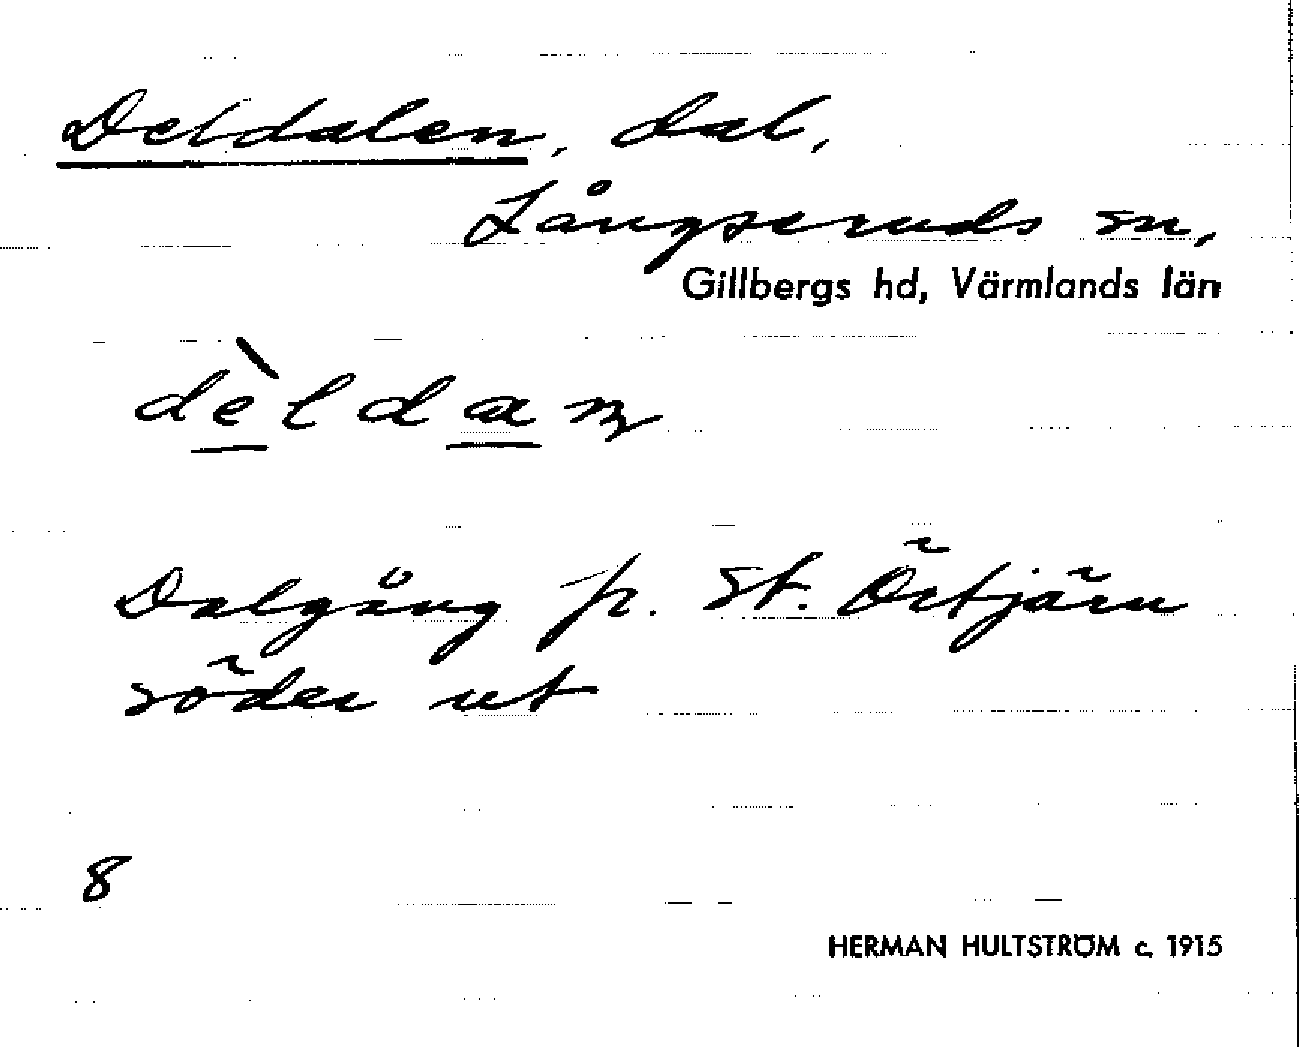 Deldalen, dal,
Långseruds sn,
Gillbergs hd, Värmlands län
dèldaɳ
Dalgång fr. St. Örtjärn
söder ut
8
HERMAN HULTSTRÖM c. 1915